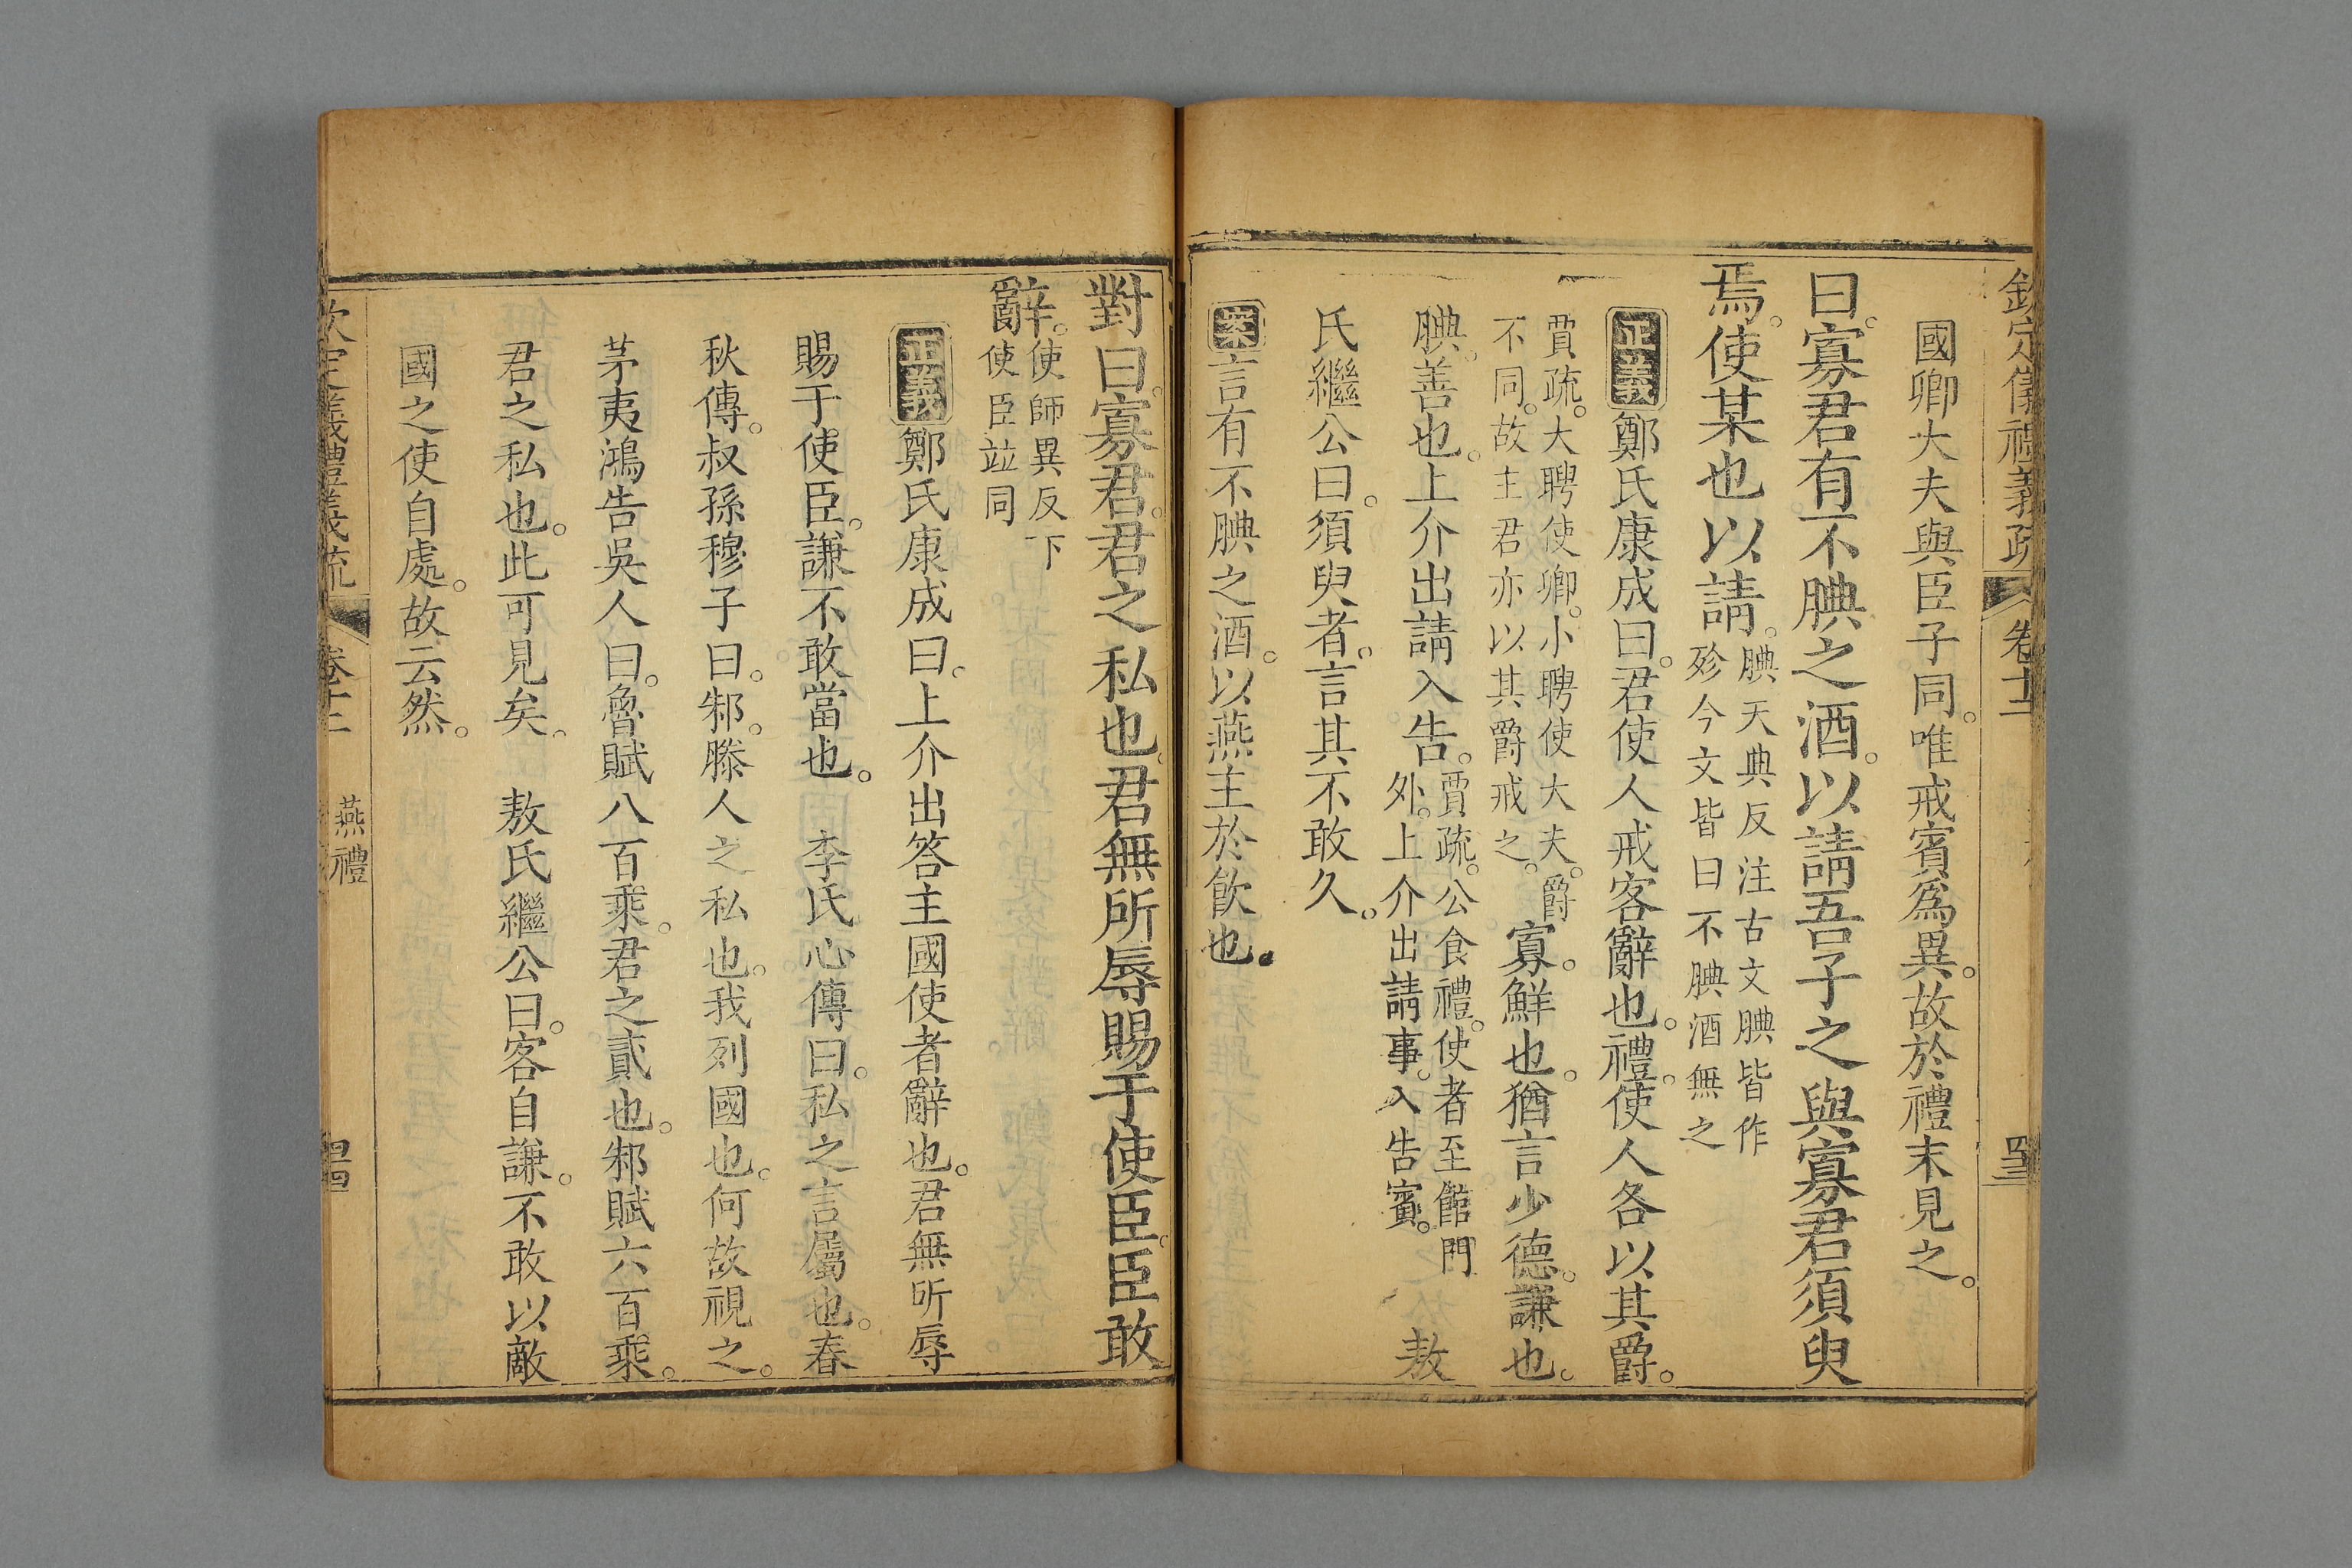 欽定儀禮義疏 卷十二 四三
國卿大夫與臣子同。唯戒賓爲異。故於禮末見之。
曰。寡君有不腆之酒。以請吾子之與寡君須臾
焉。使某也以請。
腆天典反注古文腆皆作
殄今文皆曰不腆酒無之
正義 鄭氏康成曰。君使人戒客辭也。禮。使人各以其爵。
賈疏。大聘使卿。小聘使大夫。爵
不同。故主君亦以其爵戒之。
寡。鮮也。猶言少德。謙也。
腆。善也。上介出請入告。
賈疏。公食禮。使者至館門
外。上介出請事。入告賓。
敖
氏繼公曰。須臾者。言其不敢久。
案 言有不腆之酒。以燕主於飮也。
對曰。寡君。君之私也。君無所辱賜于使臣。臣敢
辭。
使師異反下
使臣竝同
正義 鄭氏康成曰。上介出答主國使者辭也。君無所辱
賜于使臣。謙不敢當也。 李氏心傳曰。私之言屬也。春
秋傳。叔孫穆子曰。邾。滕人之私也。我列國也。何故視之。
茅夷鴻告吳人曰。魯賦八百乘。君之貳也。邾賦六百乘。
君之私也。此可見矣。 敖氏繼公曰。客自謙。不敢以敵
國之使自處。故云然。
欽定儀禮義疏 卷十二 燕禮 四四